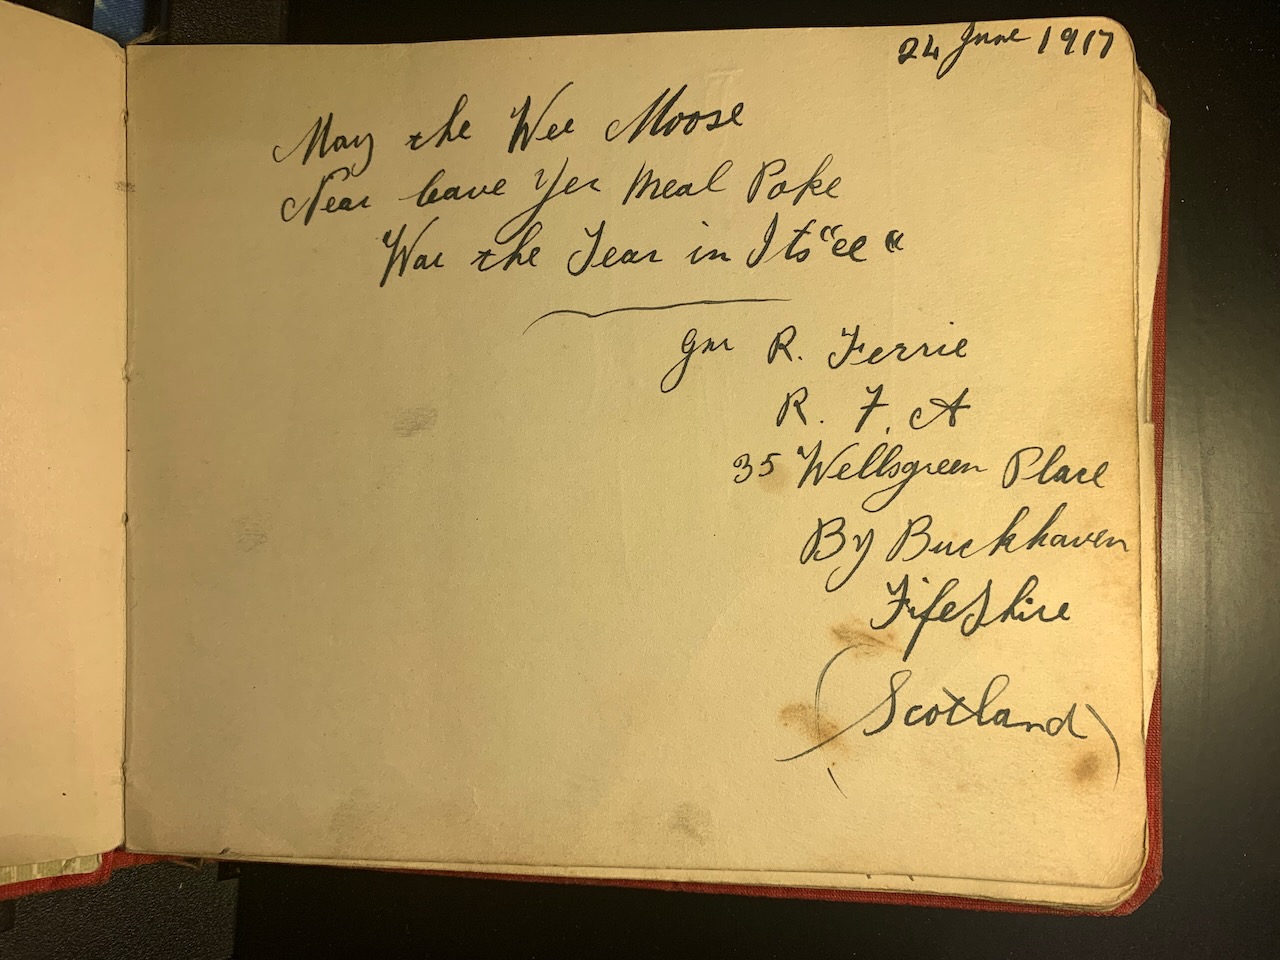 24 June 1917
May the Wee Moose
Near leave Yer Meal Poke
Wae the Tear in Its "ee"
Gnr R. Ferrie
R. F. A
35 Wellsgreen Place
By Buckhaven
Fifeshire
(Scotland)